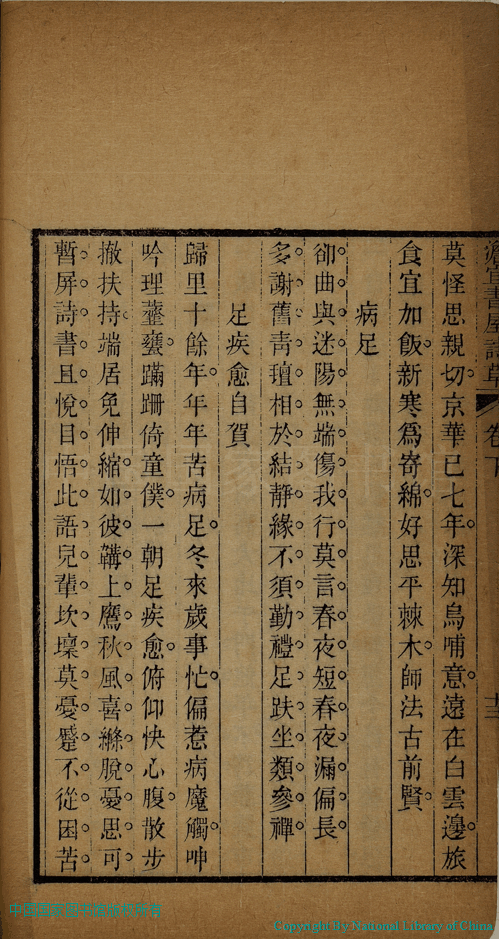 書屋詩草 卷下
莫怪思親切京華已七年。深知烏哺意遠在白雲邊。旅
食宜加飯。新寒為寄綿。好思平棘木。師法古前賢。
病足
卻曲與迷陽無端傷我行莫言春夜短春夜漏偏長
多謝舊青氊相於結靜緣不須勤禮足趺坐類參禪
足疾愈自賀
歸里十餘年。年年苦病足。冬來歲事忙。偏惹病魔觸。呻
吟理虀甕。蹣跚倚童僕。一朝足疾愈。俯仰快心腹。散步
撤扶持。端居免伸縮。如彼鞲上鷹。秋風喜絛脫。憂思可
暫屏。詩書且悅目。悟此語兒輩。坎壈莫憂蹙。不從困苦
Copyright by National Library of China